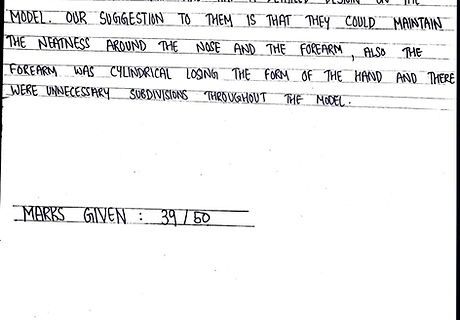 DETAILED DESIGN ON THE
MODEL. OUR SUGGESTION TO THEM IS THAT THEY COULD MAINTAIN
THE NEATNESS AROUND THE NOSE AND THE FOREARM, ALSO THE
FOREARM WAS CYLINDRICAL LOSING THE FORM OF THE HAND AND THERE
WERE UNNECESSARY SUBDIVISIONS THROUGHOUT THE MODEL.
MARKS GIVEN : 39/50